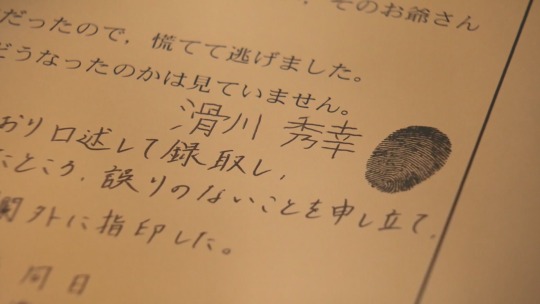 、そのお爺さん
だったので、慌てて逃げました。
どうなったのかは見ていません。
滑川 秀幸
おり口述して録取し、
たところ、誤りのないことを申し立て、
欄外に指印した。
同日